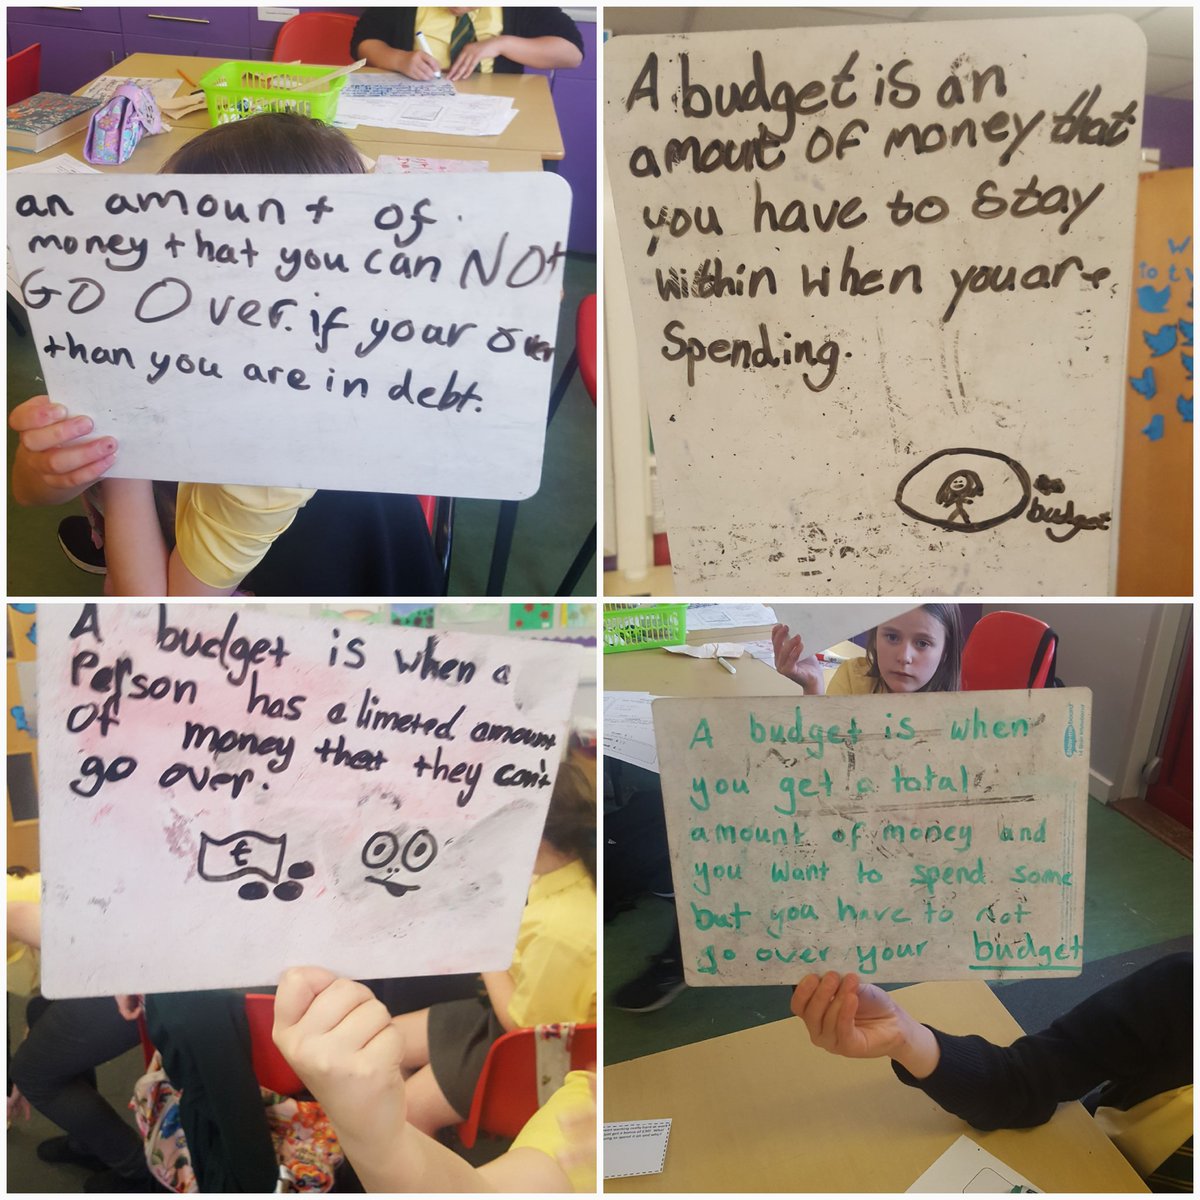 an amount of
money that you can NOt
GO Over. if your over
than you are in debt.
A budget is an
amount of money that
you have to stay
within when youare
spending.
budget
A budget is when a
Person has a limeted amount
of money that they can't
go over.
£
A budget is when
you get a total
amount of money and
you want to spend some
but you have to not
go over your budget